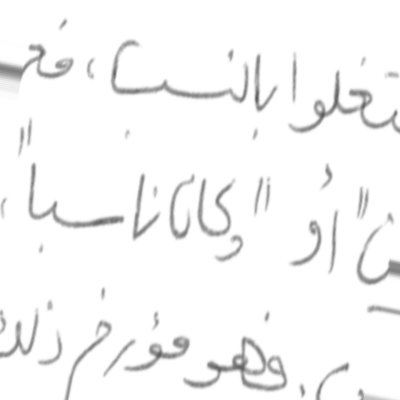 تغلوا بالنسب، فـ
ن" أو "وكان ناسباً"
، فهو مؤرخ ذلك